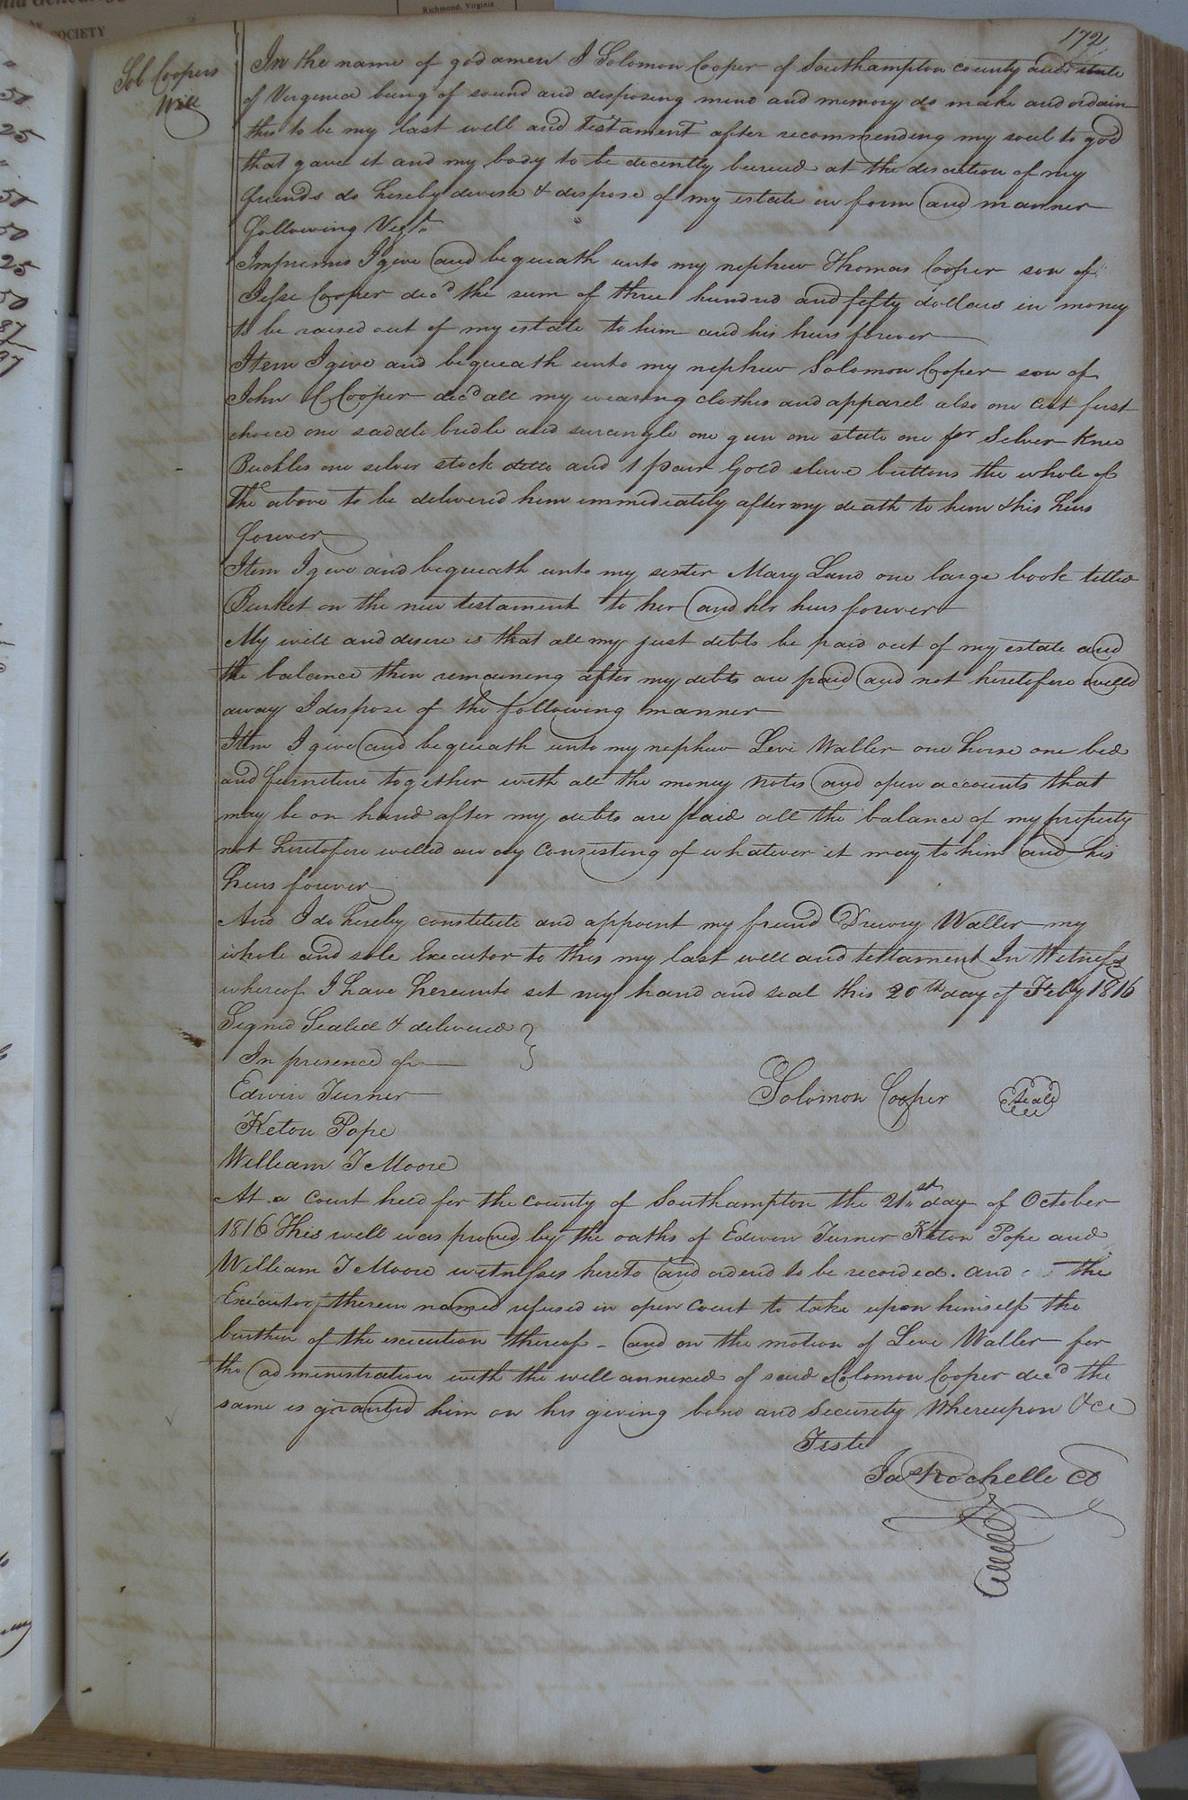 Richmond, Virginia
SOCIETY
172
Sol Coopers
Will
In the name of god amen I Solomon Cooper of Southampton county and state
of Virginia being of sound and disposing mind and memory do make and ordain
this to be my last will and Testament after recommending my soul to god
that gave it and my body to be decently buried at the discretion of my
friends do hereby devise & dispose of my estate in form and manner
following Vizt
Imprimis I give and bequeath unto my nephew Thomas Cooper son of
Jesse Cooper decd the sum of three hundred and fifty dollars in money
to be raised out of my estate to him and his heirs forever
Item I give and bequeath unto my nephew Solomon Cooper son of
John C Cooper decd all my wearing clothes and apparel also one colt first
choice one saddle bridle and surcingle one gun one slate one pr Silver Knee
Buckles one silver stock ditto and 1 pair Gold sleeve buttons the whole of
the above to be delivered him immediately after my death to him & his heirs
forever
Item I give and bequeath unto my sister Mary Land one large book titled
Burket on the new testament to her and her heirs forever
My will and desire is that all my just debts be paid out of my estate and
the balance then remaining after my debts are paid and not heretofore willed
away I dispose of the following manner
Item I give and bequeath unto my nephew Levi Waller one horse one bed
and furniture together with all the money notes and open accounts that
may be on hand after my debts are paid all the balance of my property
not heretofore willed away Consisting of whatever it may to him and his
heirs forever
And I do hereby constitute and appoint my friend Drewry Waller my
whole and sole Executor to this my last will and testament In Witness
whereof I have hereunto set my hand and seal this 20th day of Feby 1816
Signed Sealed & delivered
In presence of
Edwin Turner
Solomon Cooper Seal
Keton Pope
William T Moore
At a Court held for the county of Southampton the 21st day of October
1816 This will was proved by the oaths of Edwin Turner Keton Pope and
William T Moore witnesses hereto and ordered to be recorded. and the
Executor therein named refused in open Court to take upon himself the
burthen of the execution thereof - and on the motion of Levi Waller for
the administration with the will annexed of said Solomon Cooper decd the
same is granted him on his giving bond and Security Whereupon &ce
Teste
Jas Rochelle CC